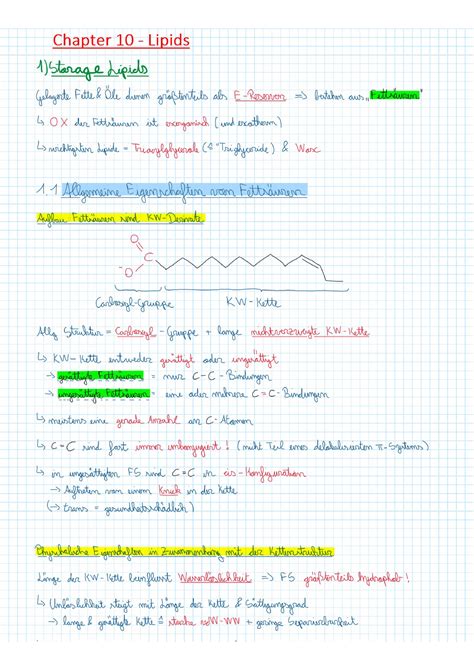 Chapter 10 - Lipids
1) Storage Lipids
gelagerte Fette & Öle dienen größtenteils als E-Reserven => bestehen aus "Fettsäuren"
↳ OX der Fettsäuren ist exergonisch (und exotherm)
↳ wichtigsten Lipide = Triacylglycerole (≙ "Triglyceride") & Wax
1.1 Allgemeine Eigenschaften von Fettsäuren
Aufbau: Fettsäuren sind KW-Derivate
O
C
-O
Carboxyl-Gruppe KW-Kette
Allg Struktur = Carboxyl-Gruppe + lange nichtverzweigte KW-Kette
↳ KW-Kette entweder gesättigt oder ungesättigt
→ gesättigte Fettsäuren = nur C-C-Bindungen
→ ungesättigte Fettsäuren = eine oder mehrere C=C-Bindungen
↳ meistens eine gerade Anzahl an C-Atomen
↳ C=C sind fast immer unkonjugiert! (nicht Teil eines delokalisierten π-Systems)
↳ in ungesättigten FS sind C=C in cis-Konfiguration
→ Auftreten von einem Knick in der Kette
(→ trans = gesundheitsschädlich)
Physikalische Eigenschaften in Zusammenhang mit der Kettenstruktur
Länge der KW-Kette beeinflusst Wasserlöslichkeit => FS größtenteils hydrophob!
↳ Unlöslichkeit steigt mit Länge der Kette & Sättigungsgrad
→ lange & gesättigte Kette ≙ starke vdW-WW + geringe Separierbarkeit